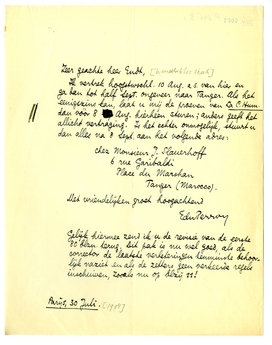 Zeer geachte heer Eindt,
Ik vertrek hoogstwrschl. 10 Aug. a.s. van hier en
ga dan tot half Sept. ongeveer naar Tanger. Als het
eenigszins kan, laat u mij de proeven van De C. Hum-
dan vóór 8 Aug. hierheen sturen; anders geeft het
allicht vertraging. Is het echter onmogelijk, stuurt u
dan alles na 8 Aug. aan het volgende adres:
chez Monsieur J. Slauerhoff
6 rue Garibaldi
Place du Marshan
Tanger (Marocco).
Met vriendelijken groet hoogachtend
EduPerron
Gelijk hiermee zend ik u de revisie van de eerste
90 blzn. terug. Dit pak is nu wel goed, als de
corrector de laatste verbeteringen hnminde behoor-
lijk naziet en als de zetters geen verkeerde regels
inschuiven, zooals nu op blzij 55!
Parijs, 30 Juli. [1934]